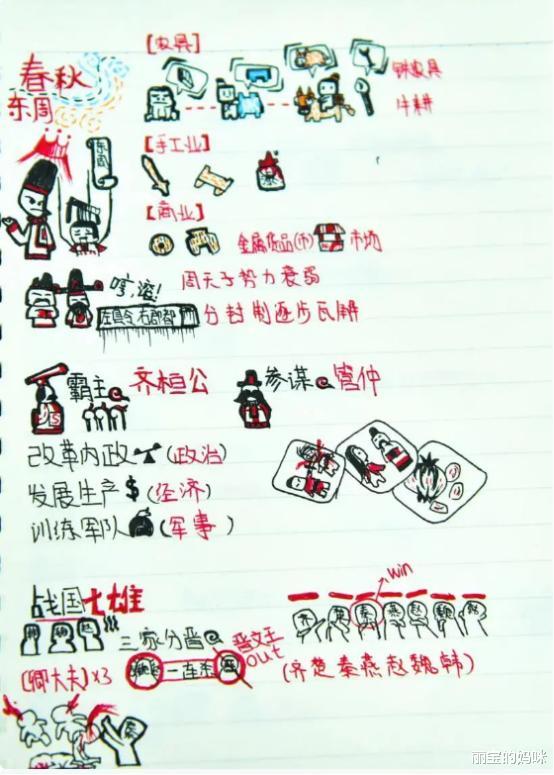 [农具]
春秋
铁农具
东周
牛耕
[手工业]
东周
[商业]
金属货品(币) 市场
哼,滚!
周天子势力衰弱
分封制逐步瓦解
霸主 齐桓公 参谋 管仲
改革内政 (政治)
发展生产 $ (经济)
训练军队 (军事)
win
战国七雄
齐 楚 秦 燕 赵 魏 韩
三家分晋
out
(卿大夫)×3
(齐楚秦燕赵魏韩)
丽宝的妈咪